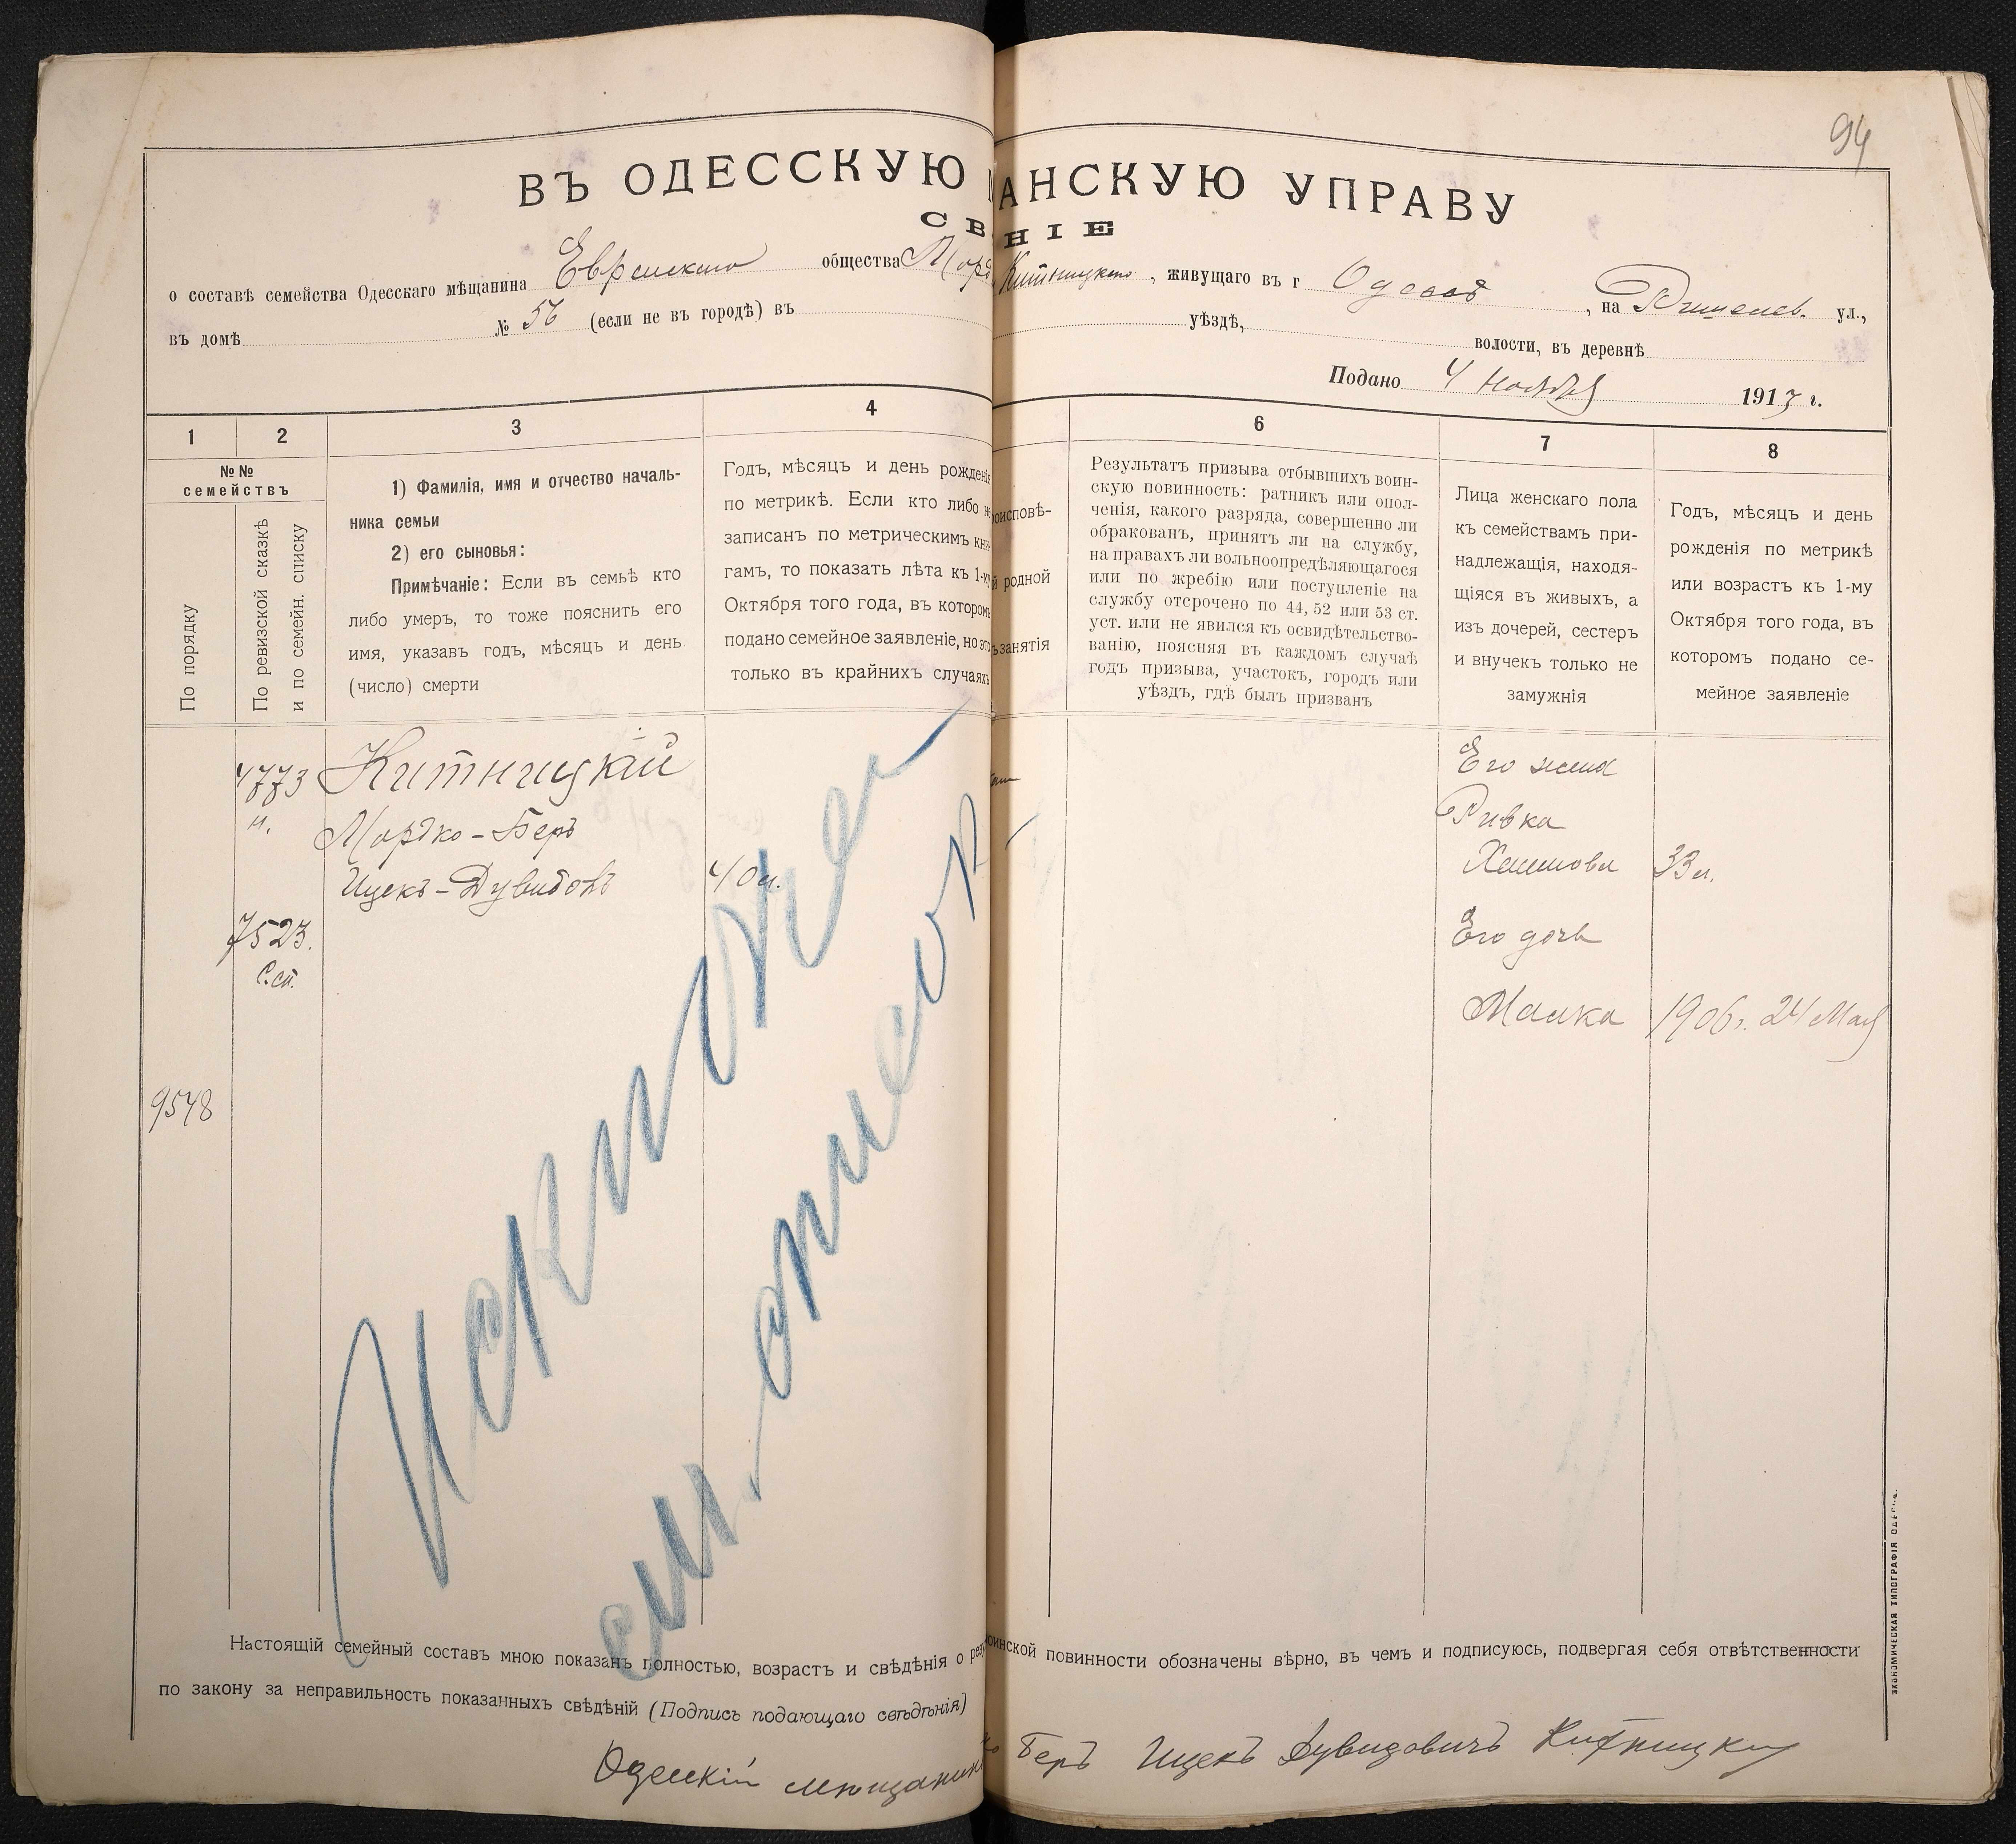 94
ВЪ ОДЕССКУЮ АНСКУЮ УПРАВУ
СВ НІЕ
о составѣ семейства Одесскаго мѣщанина Еврейскаго общества Морд Китницкаго, живущаго въ г Одессѣ, на Ришельев. ул.,
въ домѣ № 56 (если не въ городѣ) въ уѣздѣ, волости, въ деревнѣ
Подано 4 Ноября 1913 г.
1
2
3
4
6
7
8
№№
семействъ
По порядку
По ревизской сказкѣ
и по семейн. списку
1) Фамилія, имя и отчество началь-
ника семьи
2) его сыновья:
Примѣчаніе: Если въ семьѣ кто
либо умеръ, то тоже пояснить его
имя, указавъ годъ, мѣсяцъ и день
(число) смерти
Годъ, мѣсяцъ и день рожденія
по метрикѣ. Если кто либо не
записанъ по метрическимъ кни-
гамъ, то показать лѣта къ 1-му
Октября того года, въ которомъ
подано семейное заявленіе, но это
только въ крайнихъ случаяхъ
оисповѣ-
й родной
занятія
Результатъ призыва отбывшихъ воин-
скую повинность: ратникъ или опол-
ченія, какого разряда, совершенно ли
обракованъ, принятъ ли на службу,
на правахъ ли вольноопредѣляющагося
или по жребію или поступленіе на
службу отсрочено по 44, 52 или 53 ст.
уст. или не явился къ освидѣтельство-
ванію, поясняя въ каждомъ случаѣ
годъ призыва, участокъ, городъ или
уѣздъ, гдѣ былъ призванъ
Лица женскаго пола
къ семействамъ при-
надлежащія, находя-
щіяся въ живыхъ, а
изъ дочерей, сестеръ
и внучекъ только не
замужнія
Годъ, мѣсяцъ и день
рожденія по метрикѣ
или возрастъ къ 1-му
Октября того года, въ
которомъ подано се-
мейное заявленіе
4773 Китницкій
н. Мордко-Беръ
Ицекъ-Дувидовъ 40 л.
7523.
С.сп.
9548
Его жена
Ривка
Хаимова 33 л.
Его дочь
Малка 1906 г. 24 Мая
см. описок
Настоящій семейный составъ мною показанъ полностью, возрастъ и свѣдѣнія о рез оинской повинности обозначены вѣрно, въ чемъ и подписуюсь, подвергая себя отвѣтственности
по закону за неправильность показанныхъ свѣдѣній (Подпись подающаго свѣдѣнія)
Одесскій мѣщанинъ ко Беръ Ицекъ Дувидовичъ Китницкий
ЭКОНОМИЧЕСКАЯ ТИПОГРАФІЯ ОДЕССА.